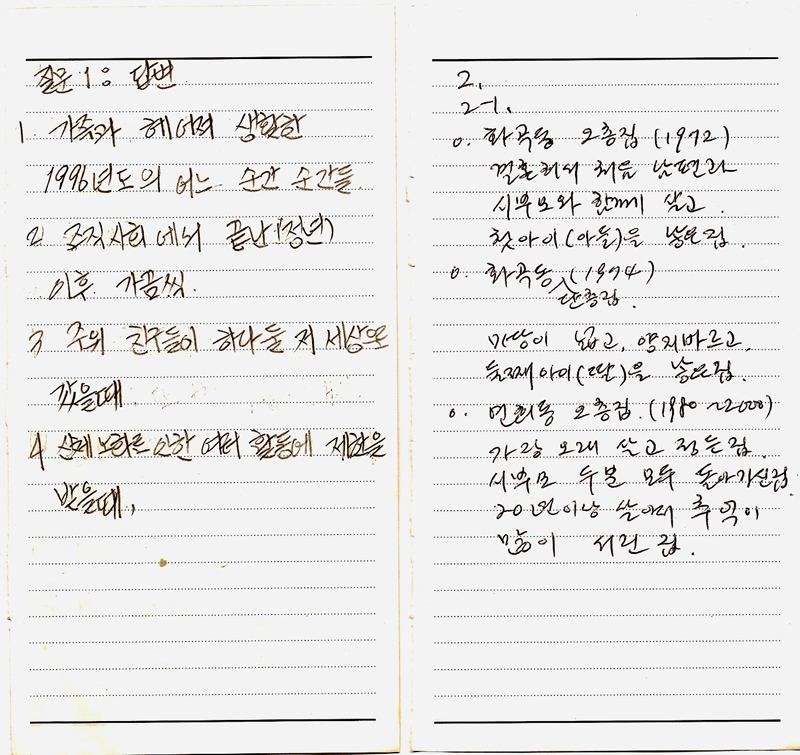 질문 1: 답변
1 가족과 헤어져 생활한
1996년도의 어느 순간 순간들
2 조직사회에서 끝난(정년)
이후 가끔씩.
3 주위 친구들이 하나둘 저 세상으로
갔을때
4 신체노화로 인한 여러 활동에 제한을
받을때,
2.
2-1.
o. 화곡동 오층집 (1972)
결혼해서 처음 남편과
시부모와 함께 살고.
첫아이(아들)을 낳은집.
o. 화곡동 (1974)
단층집.
마당이 넓고, 양지바르고,
둘째아이(딸)을 낳은집.
o. 연희동 오층집. (1980~2000)
가장 오래 살고 정든집.
시부모 두분 모두 돌아가신집
20년이상 살아서 추억이
많이 서린 집.